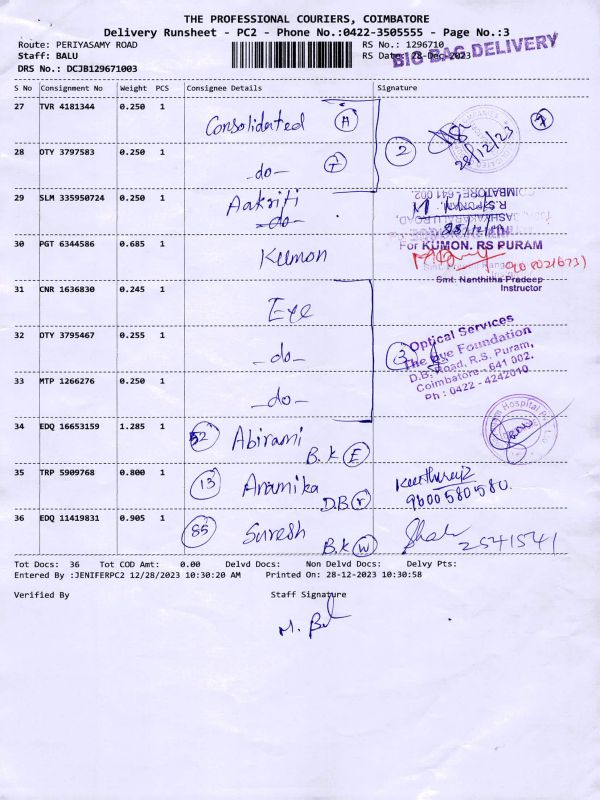 THE PROFESSIONAL COURIERS, COIMBATORE
Delivery Runsheet - PC2 - Phone No.:0422-3505555 - Page No.:3
Route: PERIYASAMY ROAD RS No.: 1296710
Staff: BALU RS Date: 28-Dec-2023
BIG BAG DELIVERY
DRS No.: DCJB129671003
S No Consignment No Weight PCS Consignee Details Signature
27 TVR 4181344 0.250 1 Consolidated A
2 28/12/23
28 OTY 3797583 0.250 1 -do-
29 SLM 335950724 0.250 1 Aakriti
-do-
COIMBATORE - 641 002.
R.S. PURAM,
30 PGT 6344586 0.685 1 Kumon
For KUMON. RS PURAM
Smt. Nanthitha Pradeep
Instructor
31 CNR 1636830 0.245 1 Eye
32 OTY 3795467 0.255 1 -do-
3
Optical Services
The Eye Foundation
D.B. Road, R.S. Puram,
Coimbatore - 641 002.
Ph : 0422 - 4242010.
33 MTP 1266276 0.250 1 -do-
34 EDQ 16653159 1.285 1 52 Abirami
B.K E
35 TRP 5909768 0.800 1 13 Anamika
D.B r
9600580580.
36 EDQ 11419831 0.905 1 85 Suresh
B.K W
2541541
Tot Docs: 36 Tot COD Amt: 0.00 Delvd Docs: Non Delvd Docs: Delvy Pts:
Entered By :JENIFERPC2 12/28/2023 10:30:20 AM Printed On: 28-12-2023 10:30:58
Verified By Staff Signature